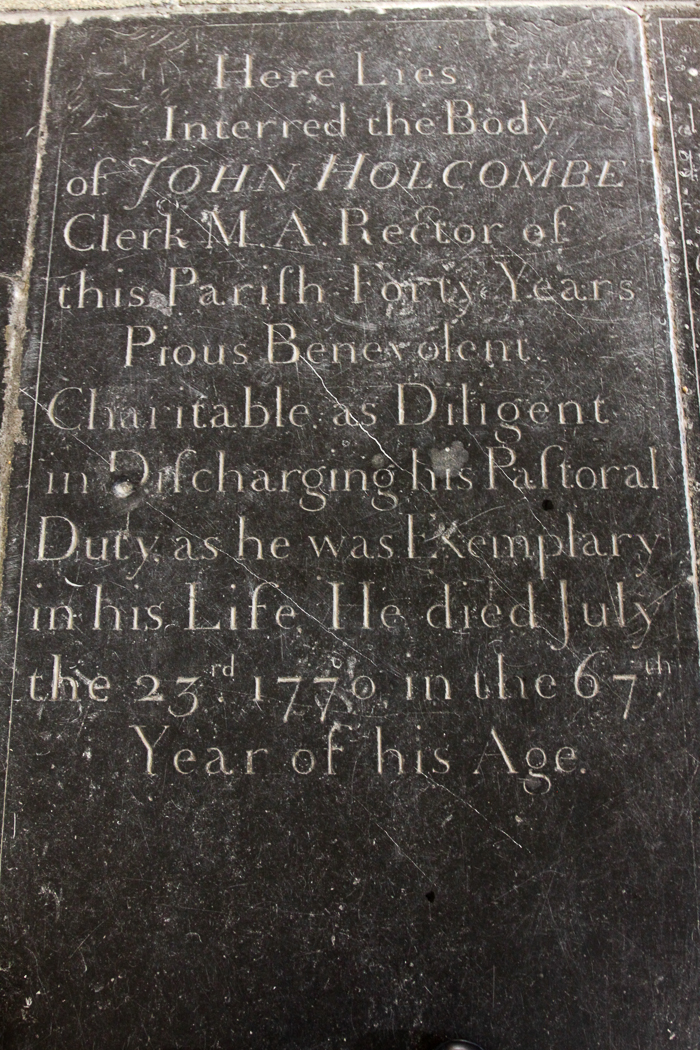 Here Lies
Interred the Body
of JOHN HOLCOMBE
Clerk M.A. Rector of
this Pariſh Forty Years
Pious Benevolent
Charitable as Diligent
in Diſcharging his Paſtoral
Duty, as he was Exemplary
in his Life He died July
the 23.rd 1770 in the 67.th
Year of his Age.